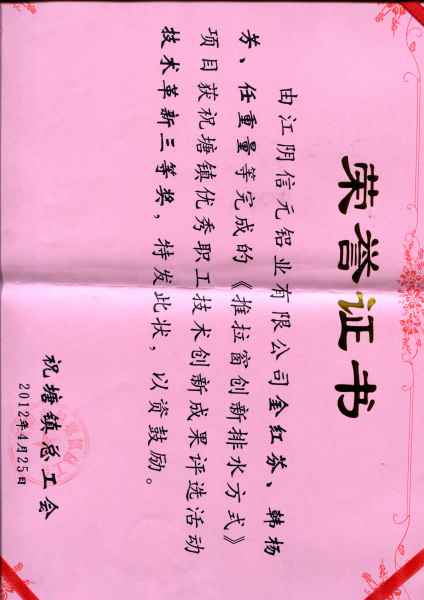 荣誉证书
由江阴信元铝业有限公司金红芬、韩杨
芳、任重量等完成的《推拉窗创新排水方式》
项目获祝塘镇优秀职工技术创新成果评选活动
技术革新三等奖，特发此状，以资鼓励。
祝塘镇总工会
2012年4月25日